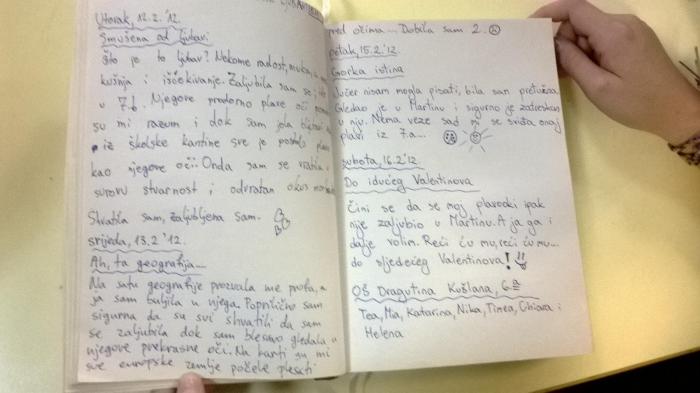 Utorak, 12.2.'12.
Smušena od ljubavi
Što je to ljubav? Nekome radost, muka,
kušnja i iščekivanje. Zaljubila sam se,
u 7.b. Njegove prodorno plave oči
su mi razum i dok sam jela
iz školske kantine sve je postalo
kao njegove oči. Onda sam se vratila
surovu stvarnost i odvratan okus
Shvatila sam, zaljubljena sam.
srijeda, 13.2.'12.
Ah, ta geografija...
Na satu geografije prozvala me profa, a
ja sam buljila u njega. Poprilično sam
sigurna da su svi shvatili da sam
se zaljubila dok sam blesavo gledala u
njegove prekrasne oči. Na karti su mi
sve europske zemlje počele plesati
pred očima... Dobila sam 2.
petak, 15.2.'12.
Gorka istina
Jučer nisam mogla pisati, bila sam pretužna.
Gledao je u Martinu i sigurno je zatreskan
u nju. Nema veze sad mi se sviđa onaj
plavi iz 7.a...
subota, 16.2.'12.
Do idućeg Valentinova
Čini se da se moj plavooki ipak
nije zaljubio u Martinu. A ja ga i
dalje volim. Reći ću mu, reći ću mu...
do sljedećeg Valentinova!
OŠ Dragutina Kušlana, 6.a
Tea, Mia, Katarina, Nika, Timea, Chiara i
Helena